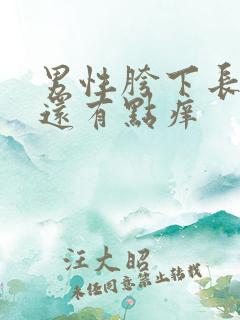 男性胯下長
還有點痒
汪大昭
未经同意禁止转载